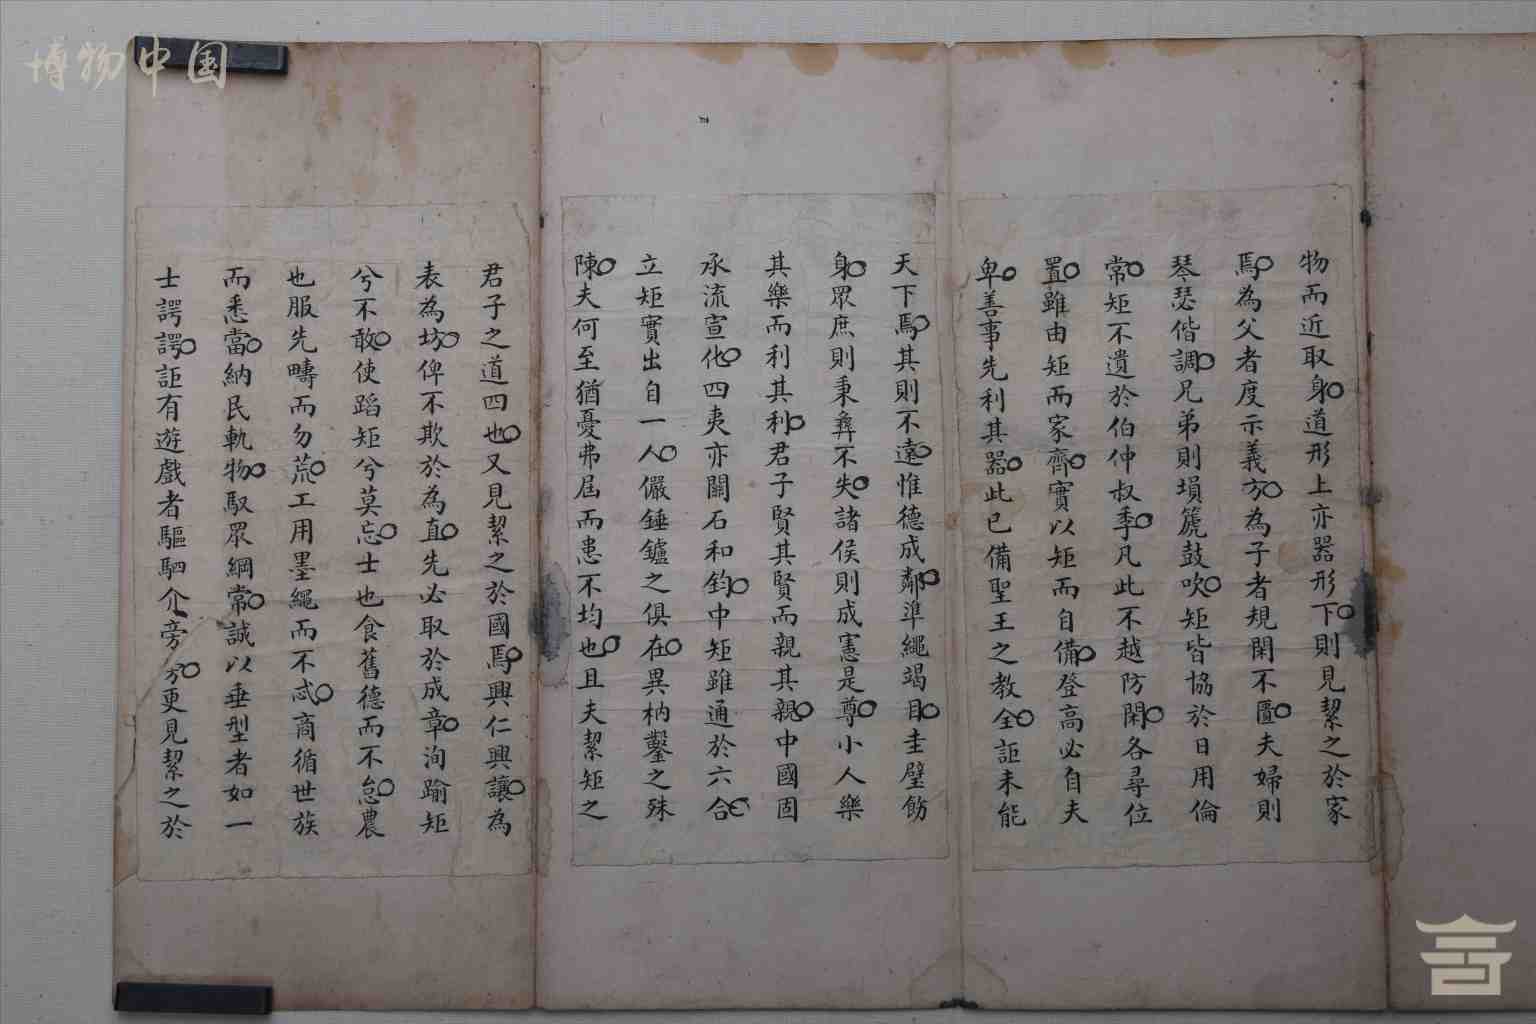 博物中国
物而近取身道形上亦器形下則見絜之於家
焉為父者度示義方為子者規閑不匱夫婦則
琴瑟偕調兄弟則塤箎鼓吹矩皆協於日用倫
常矩不遺於伯仲叔季凡此不越防閑各尋位
置雖由矩而家齊實以矩而自備登高必自夫
卑善事先利其器此已備聖王之教全詎未能
天下焉其則不遠惟德成鄰準繩竭目圭璧飭
身眾庶則秉彝不失諸侯則成憲是尊小人樂
其樂而利其利君子賢其賢而親其親中國固
承流宣化四夷亦關石和鈞中矩雖通於六合
立矩實出自一人儼錘鑪之俱在異枘鑿之殊
陳夫何至猶憂弗屆而患不均也且夫絜矩之
君子之道四也又見絜之於國焉興仁興讓為
表為坊俾不欺於為直先必取於成章洵踰矩
兮不敢使蹈矩兮莫忘士也食舊德而不怠農
也服先疇而勿荒工用墨繩而不忒商循世族
而悉當納民軌物馭眾綱常誠以垂型者如一
士諤諤詎有遊戲者驅駟介旁方更見絜之於